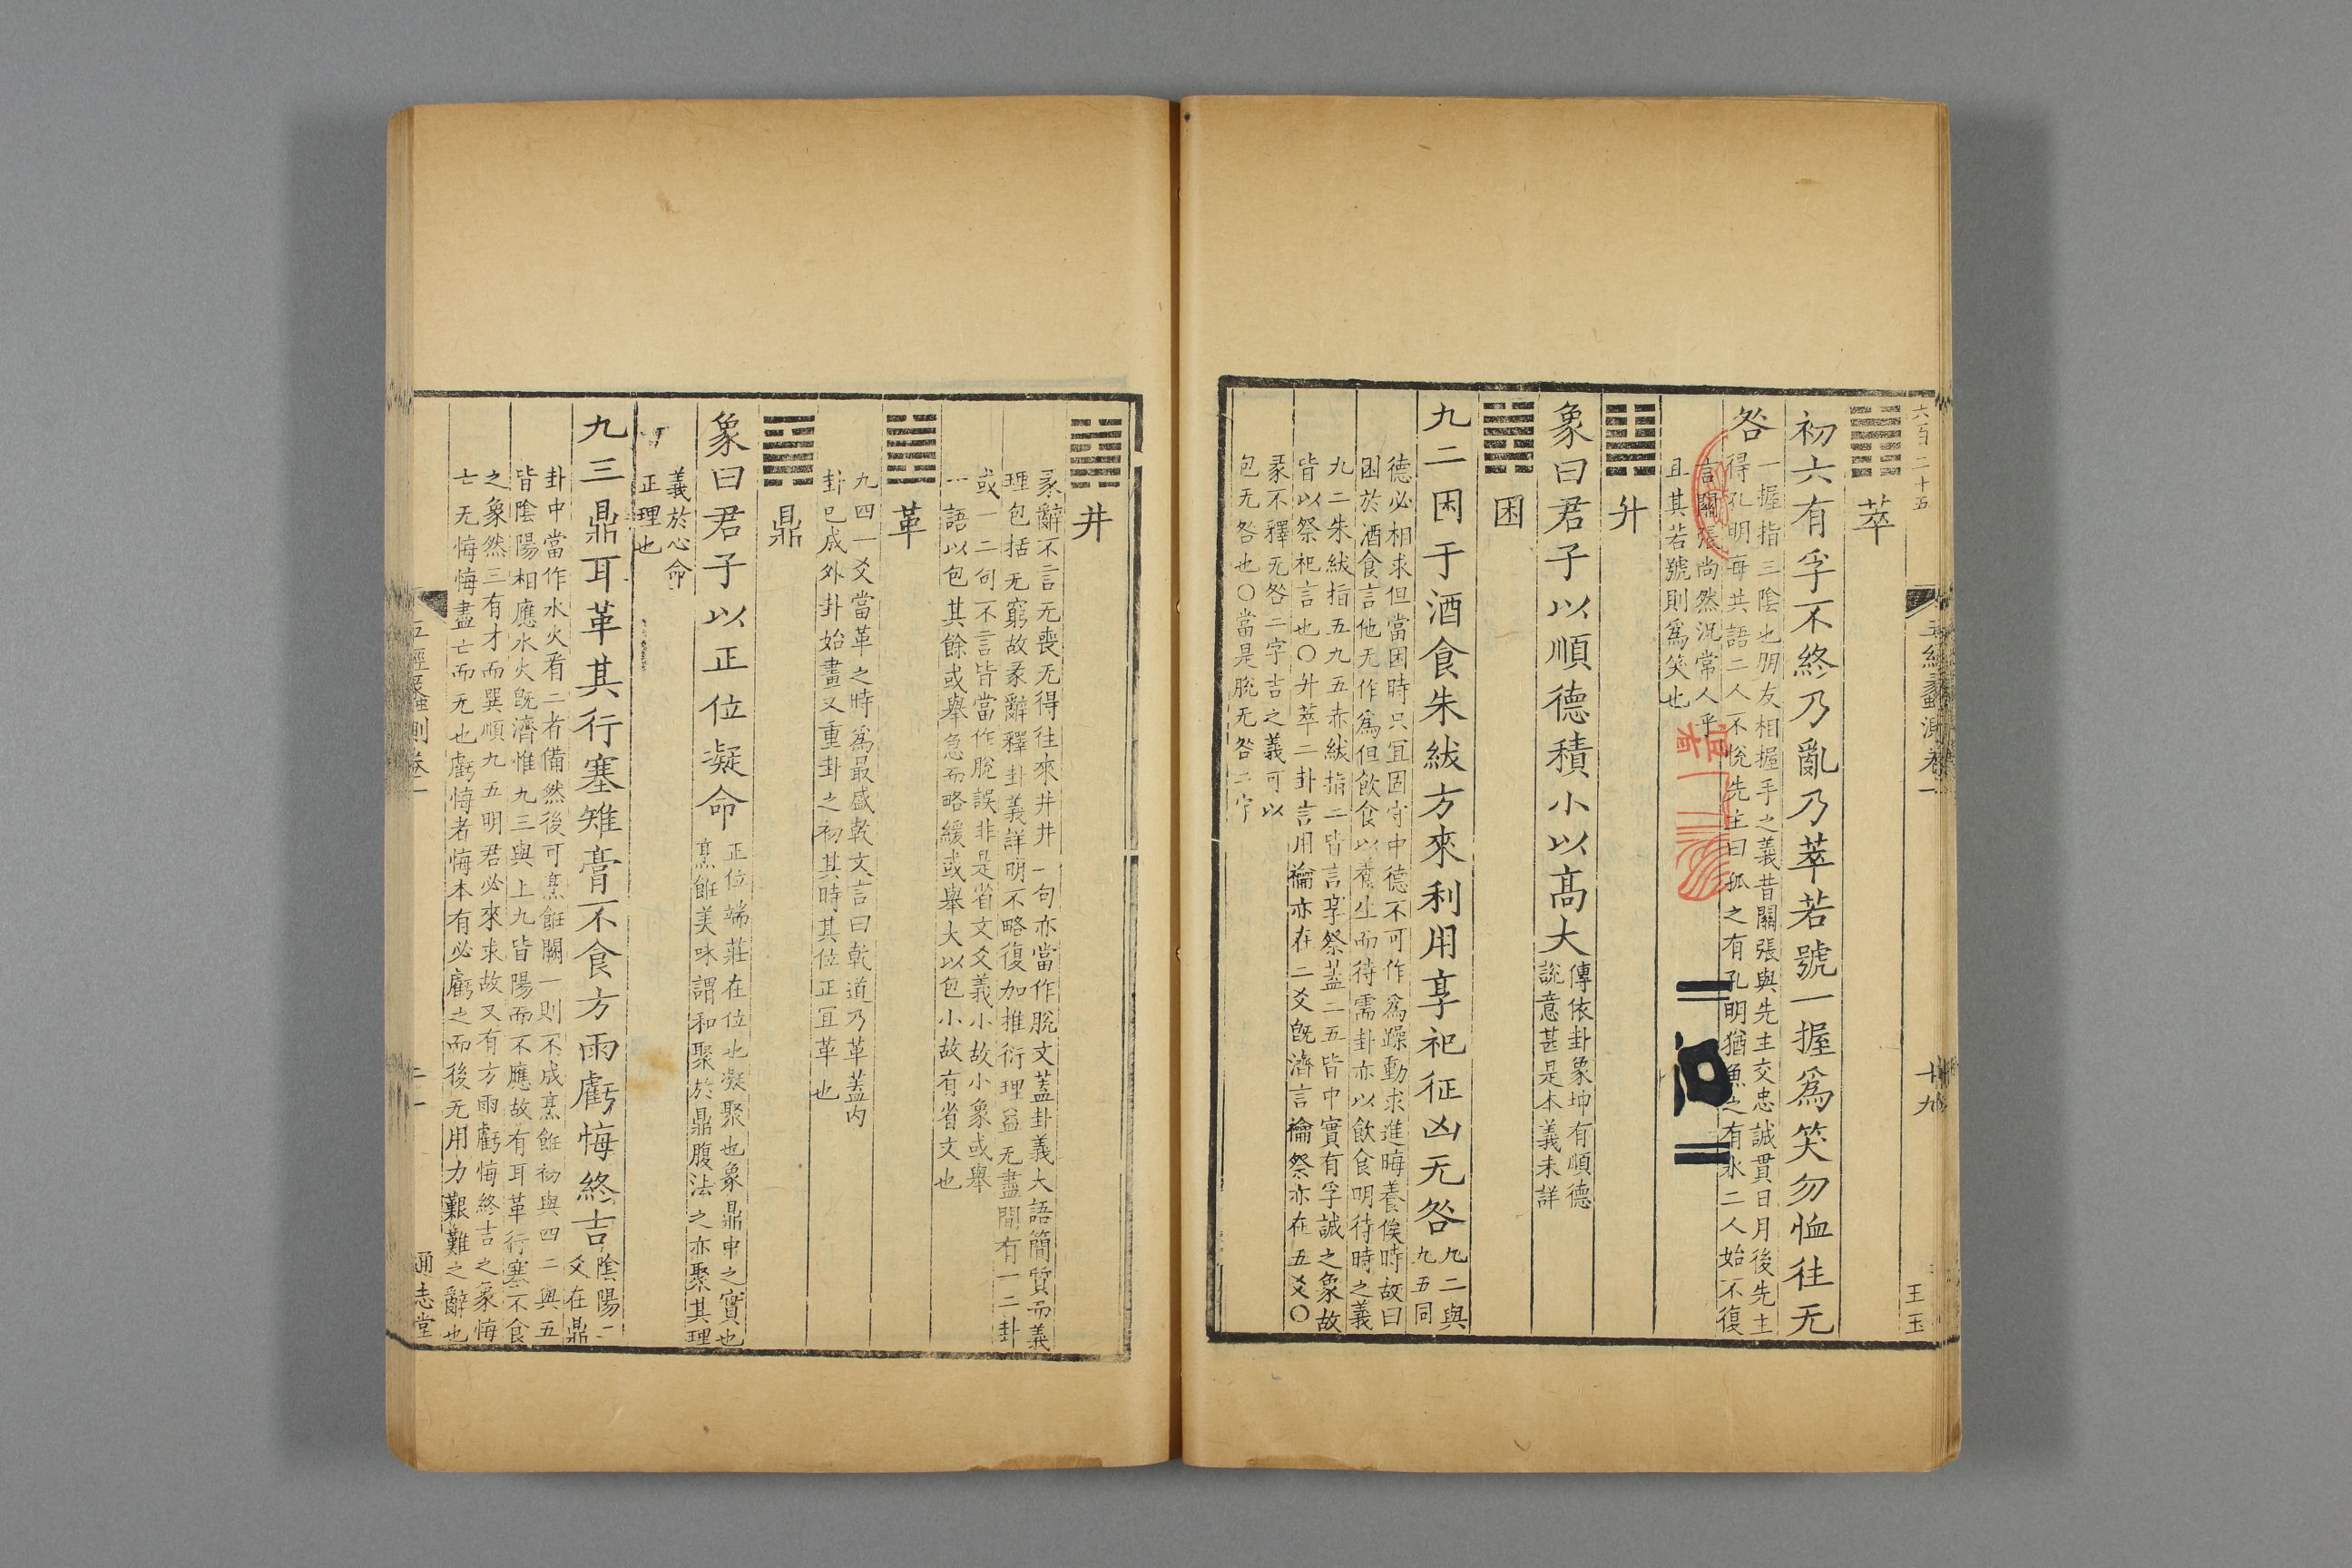 六百二十五
五經蠡測卷一
十九
王玉
萃
初六有孚不終乃亂乃萃若號一握爲笑勿恤往无
咎
一握指三陰也朋友相握手之義昔關張與先主交忠誠貫日月後先主
得孔明每共語二人不悅先主曰孤之有孔明猶魚之有水二人始不復
言關張尚然況常人乎
且其若號則爲笑也
升
象曰君子以順德積小以高大
傳依卦象坤有順德
說意甚是本義未詳
困
九二困于酒食朱紱方來利用享祀征凶无咎
九二與
九五同
德必相求但當困時只宜固守中德不可作爲躁動求進晦養俟時故曰
困於酒食言他无作爲但飲食以養生而待需卦亦以飲食明待時之義
九二朱紱指五九五赤紱指二皆言享祭蓋二五皆中實有孚誠之象故
皆以祭祀言也〇升萃二卦言用禴亦在二爻旣濟言禴祭亦在五爻〇
彖不釋无咎二字吉之義可以
包无咎也〇當是脫无咎二字
井
彖辭不言无喪无得往來井井一句亦當作脫文蓋卦義大語簡質而義
理包括无窮故彖辭釋卦義詳明不略復加推衍理益无盡間有一二卦
或一二句不言皆當作脫誤非是省文爻義小故小象或舉
一語以包其餘或舉急而略緩或舉大以包小故有省文也
革
九四一爻當革之時爲最盛乾文言曰乾道乃革蓋内
卦已成外卦始畫又重卦之初其時其位正宜革也
鼎
象曰君子以正位凝命
正位端莊在位也凝聚也象鼎中之實也
烹飪美味謂和聚於鼎腹法之亦聚其理
義於心命
正理也
九三鼎耳革其行塞雉膏不食方雨虧悔終吉
陰陽二
爻在鼎
卦中當作水火看二者備然後可烹飪闕一則不成烹飪初與四二與五
皆陰陽相應水火旣濟惟九三與上九皆陽而不應故有耳革行塞不食
之象然三有才而巽順九五明君必來求故又有方雨虧悔終吉之象悔
亡无悔悔盡亡而无也虧悔者悔本有必虧之而後无用力艱難之辭也
五經蠡測卷一
通志堂